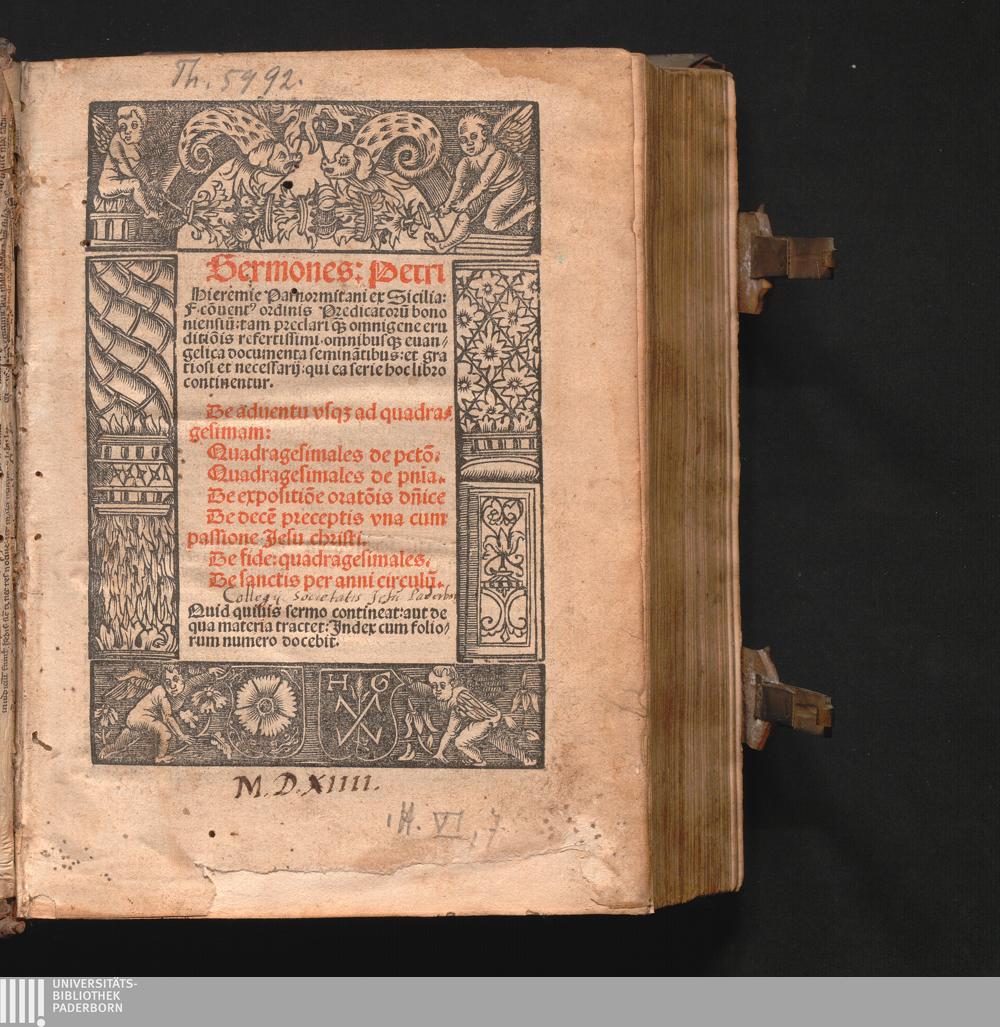 Th. 5992.
Sermones: Petri
Hieremie Panormitani ex Sicilia:
F. cõuentꝰ ordinis Predicatorũ bono
niensiũ: tam preclari ꝙ omnigene eru
ditiõis refertissimi. omnibusqꝫ euan⸗
gelica documenta seminãtibus: et gra
tiosi et necessarij: qui ea serie hoc libro
continentur.
De aduentu vsqꝫ ad quadra⸗
gesimam:
Quadragesimales de pctõ.
Quadragesimales de pnĩa.
De expositiõe oratõis dñice
De decẽ preceptis vna cum
passione Jesu christi.
De fide: quadragesimales.
De sanctis per anni circulũ.
Collegij Societatis Jesu Paderbor
Quid quiuis sermo contineat: aut de
qua materia tractet: Index cum folio⸗
rum numero docebit.
H G
M.D.XIIII.
H. VI, 7
UNIVERSITÄTS-
BIBLIOTHEK
PADERBORN